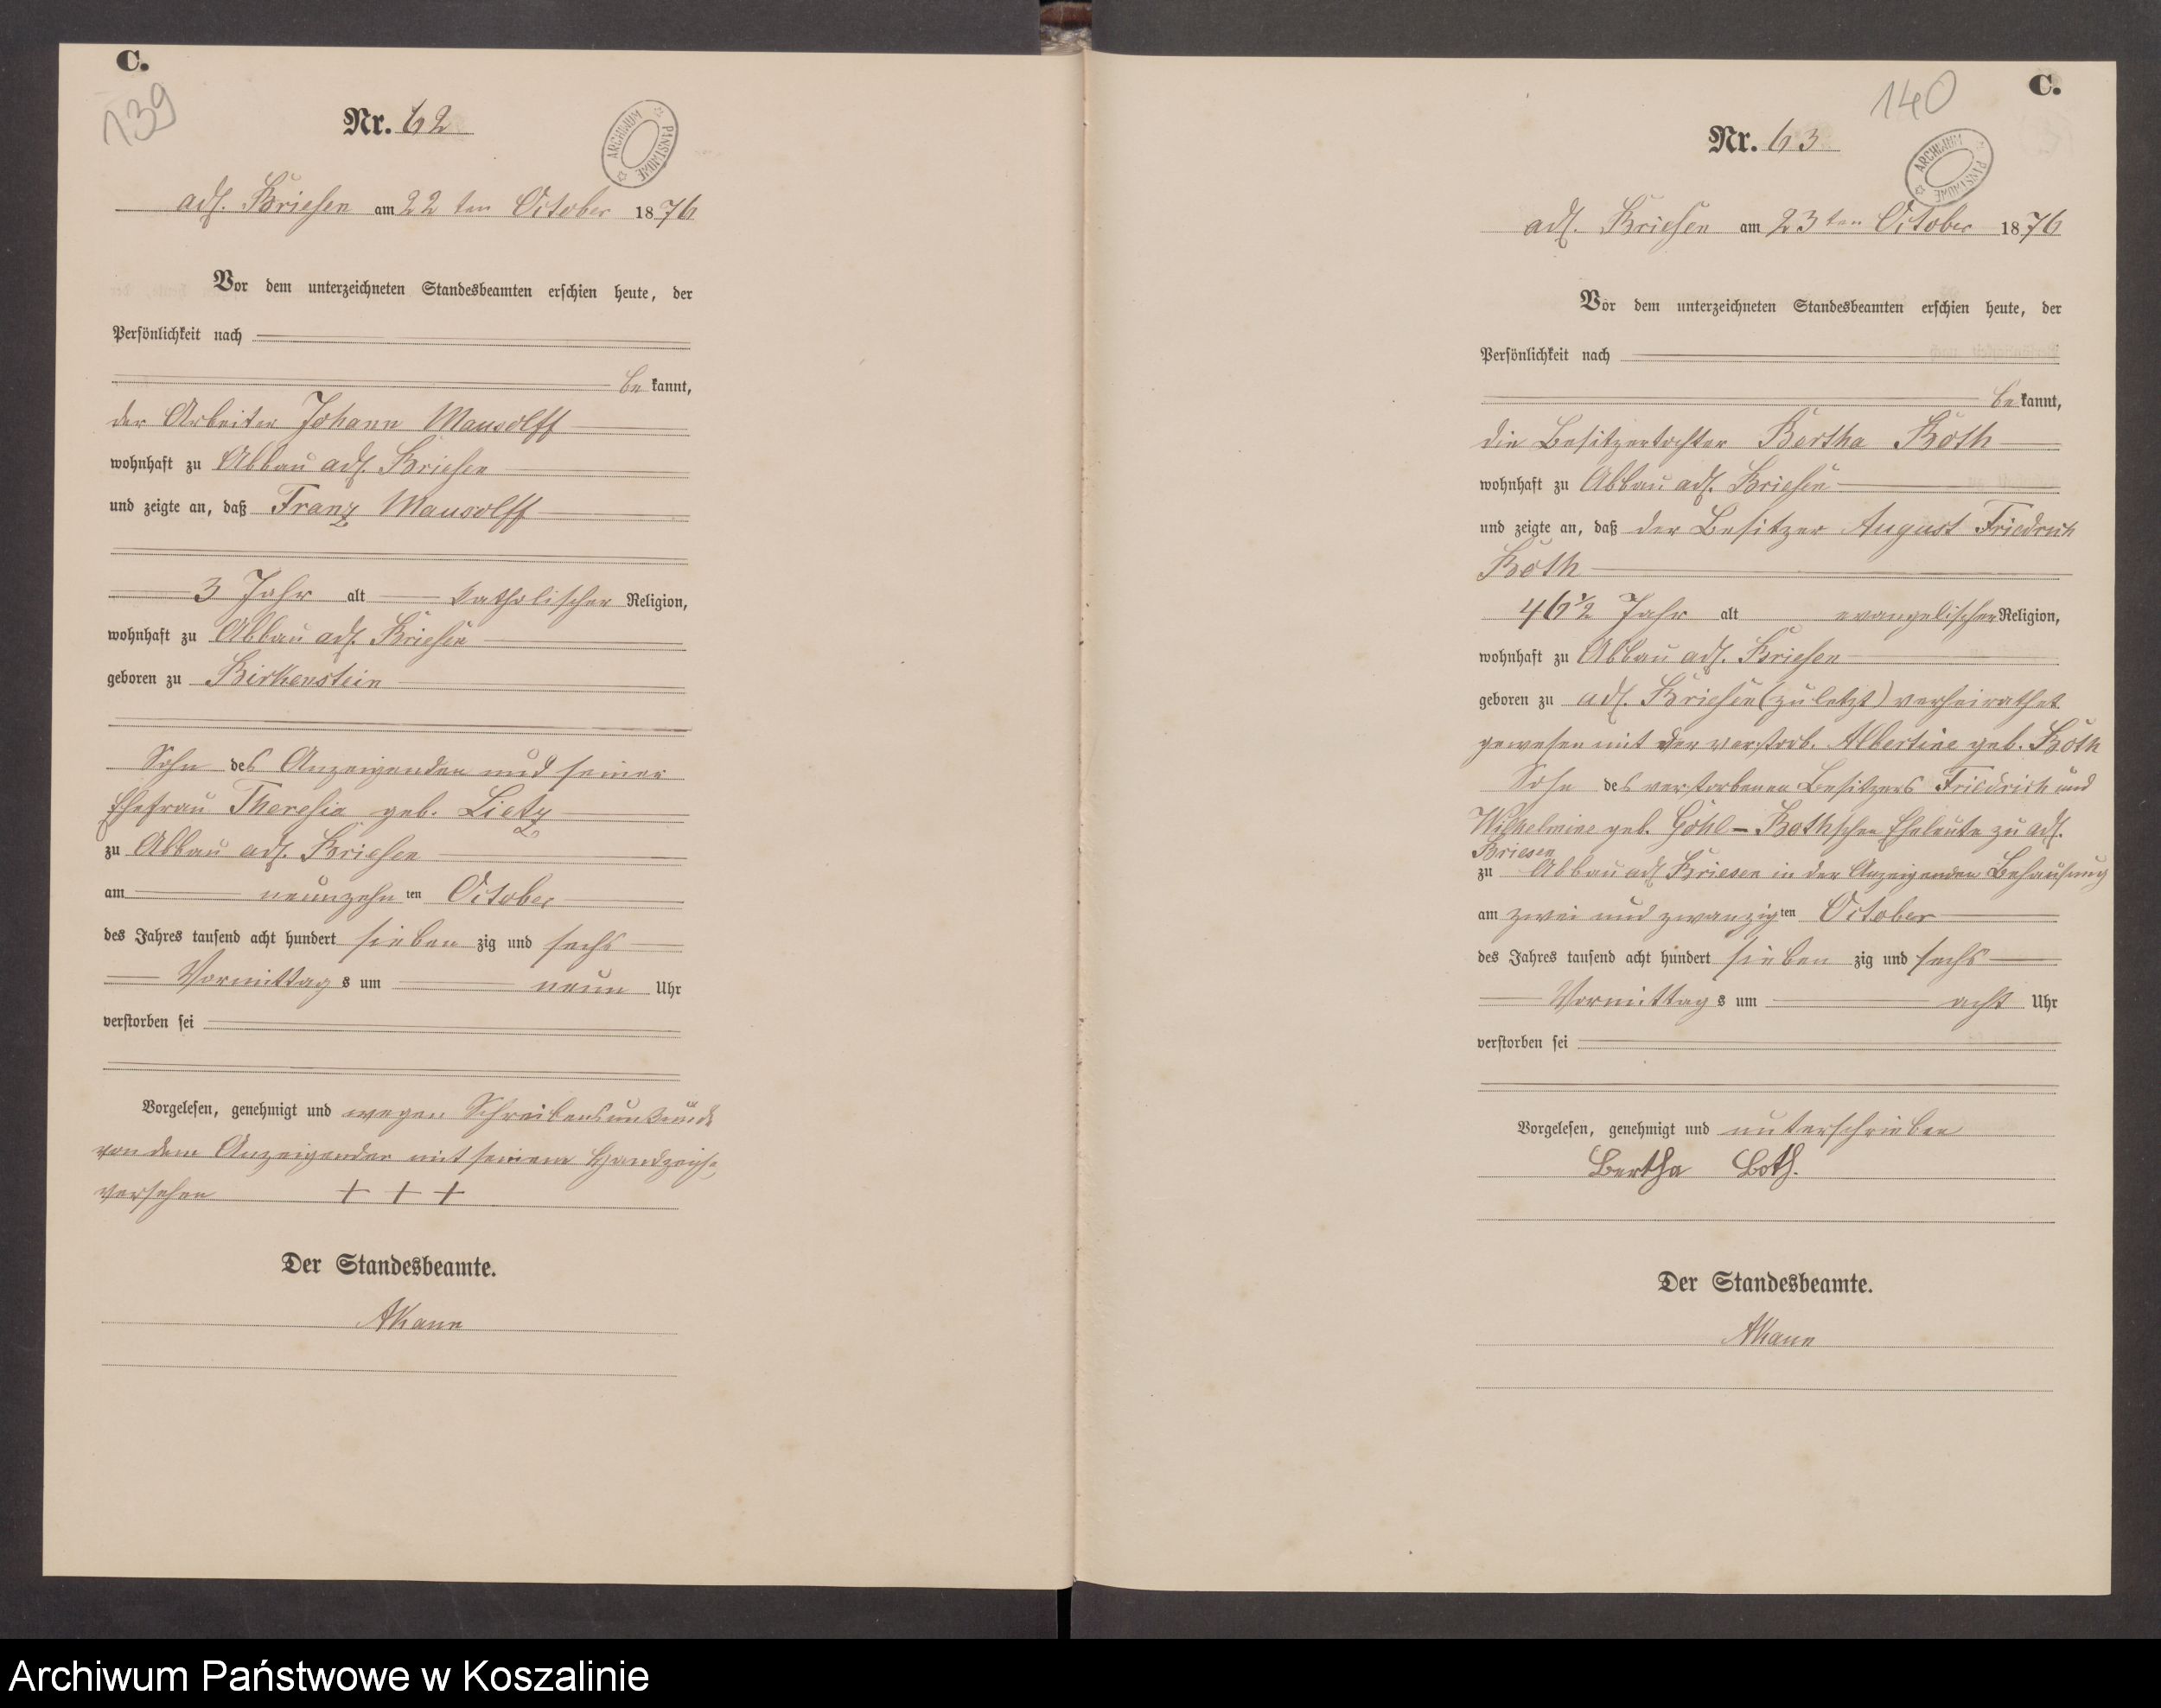 C.
139
Nr. 62
ARCHIWUM PAŃSTWOWE
adl. Briesen am 22 ten October 1876
Vor dem unterzeichneten Standesbeamten erschien heute, der
Persönlichkeit nach
be kannt,
der Arbeiter Johann Mausolff
wohnhaft zu Abbau adl. Briesen
und zeigte an, daß Franz Mausolff
3 Jahr alt katholischer Religion,
wohnhaft zu Abbau adl. Briesen
geboren zu Birkenstein
Sohn des Anzeigenden und seiner
Ehefrau Theresia geb. Lietz
zu Abbau adl. Briesen
am neunzehn ten October
des Jahres tausend acht hundert sieben zig und sechs
Vormittag s um neun Uhr
verstorben sei
Vorgelesen, genehmigt und wegen Schreibensunkunde
von dem Anzeigenden mit seinem Handzeichen
versehen + + +
Der Standesbeamte.
AKann
C.
140
Nr. 63
ARCHIWUM PAŃSTWOWE
adl. Briesen am 23 ten October 1876
Vor dem unterzeichneten Standesbeamten erschien heute, der
Persönlichkeit nach
be kannt,
die Besitzertochter Bertha Both
wohnhaft zu Abbau adl. Briesen
und zeigte an, daß der Besitzer August Friedrich
Both
46 1/2 Jahr alt evangelischer Religion,
wohnhaft zu Abbau adl. Briesen
geboren zu adl. Briesen (zuletzt) verheirathet
gewesen mit der verstorb. Albertine geb. Both
Sohn des verstorbenen Besitzers Friedrich und
Wilhelmine geb. Göhl - Bothschen Eheleute zu adl.
Briesen
zu Abbau adl Briesen in der Anzeigenden Behausung
am zwei und zwanzig ten October
des Jahres tausend acht hundert sieben zig und sechs
Vormittag s um acht Uhr
verstorben sei
Vorgelesen, genehmigt und unterschrieben
Bertha Both.
Der Standesbeamte.
AKann
Archiwum Państwowe w Koszalinie